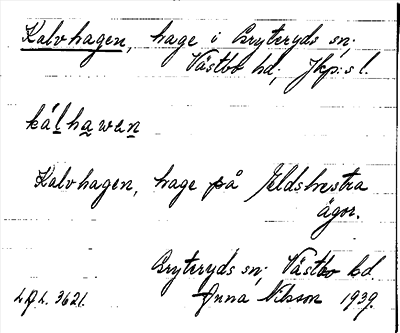 Kalvhagen, hage i Bryteryds sn;
Västbo hd, Jkp:s l.
kálhawan
Kalvhagen, hage på Eldshestra
ägor.
Bryteryds sn; Västbo hd.
L.A.L. 3621. Anna Nilsson 1939.